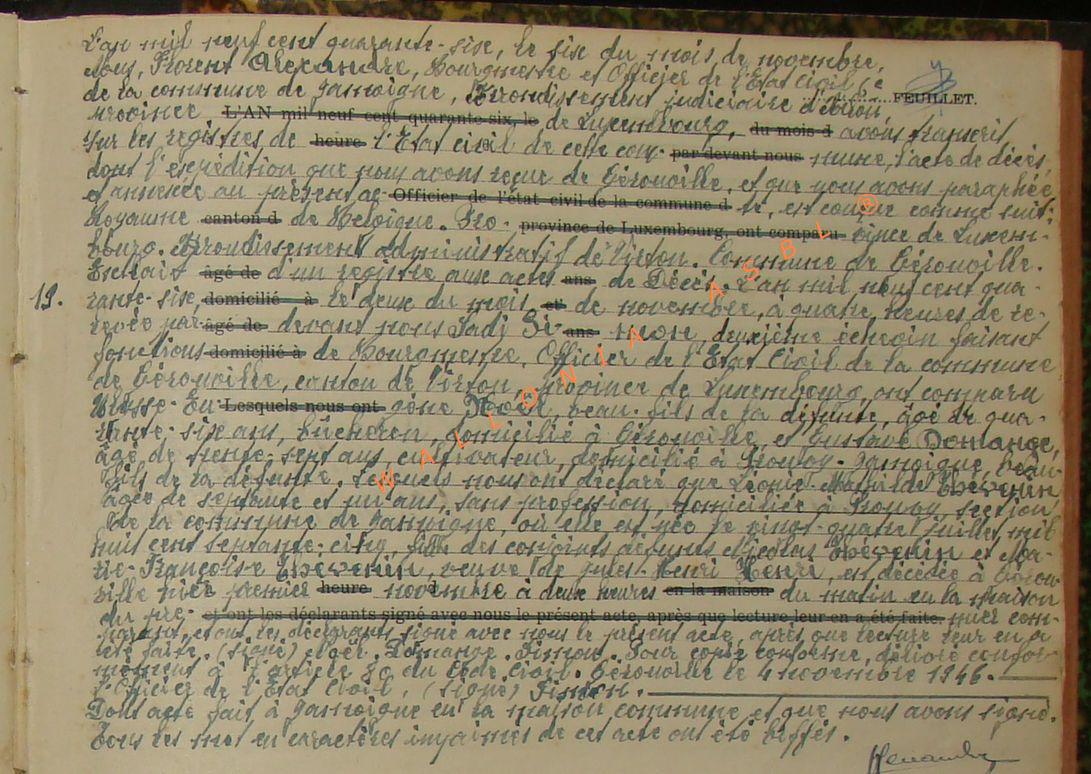 L'an mil neuf cent quarante-six, le six du mois de novembre,
Nous, Florent Alexandre, Bourgmestre et Officier de l'Etat Civil 6e
FEUILLET.
de la commune de Jamoigne, Arrondissement judiciaire d'Arlon
province L'AN mil neuf cent quarante-six, le de Luxembourg, du mois d avons transcrit
sur les registres de heure l'Etat civil de cette com- par devant nous mune, l'acte de décès
dont l'expédition que nous avons reçue de Gérouville, et que nous avons paraphée
et annexée au présent ac- Officier de l'état civil de la commune d te, est conçue comme suit:
Royaume canton d de Belgique. Pro- province de Luxembourg, ont comparu vince de Luxem-
bourg. Arrondissement administratif de Virton. Commune de Gérouville.
Extrait âgé de d'un registre aux actes ans de Décès. L'an mil neuf cent qua-
13. rante-six domicilié à le deux du mois et de novembre, à quatre heures de re-
levée par âgé de devant nous Sadi Si- ans mon, deuxième échevin faisant
fonctions domicilié à de Bourgmestre, Officier de l'Etat Civil de la commune
de Gérouville, canton de Virton, province de Luxembourg, ont comparu
Eu- Lesquels nous ont gène Noël, beau-fils de la défunte, âgé de qua-
rante-six ans, bûcheron, domicilié à Gérouville, et Gustave Domange,
âgé de trente-sept ans, cultivateur, domicilié à Prouvy-Jamoigne, beau-
fils de la défunte. Lesquels nous ont déclaré que Léonie-Mathilde Thévenin
âgée de septante et un ans, sans profession, domiciliée à Prouvy, section
de la commune de Jamoigne, où elle est née le vingt-quatre juillet mil
huit cent septante-cinq, fille des conjoints défunts Nicolas Thévenin et Ma-
rie-Françoise Thévenin, veuve de Jules-Henri Henri, est décédée à Gérou-
ville hier premier heure novembre à deux heures en la maison du matin en la maison
du pre- et ont les déclarants signé avec nous le présent acte, après que lecture leur en a été faite. mier com-
parant, et ont les déclarants signé avec nous le présent acte, après que lecture leur en a
été faite. (signé) Noël. Domange. Simon. Pour copie conforme, délivré confor-
mément à l'article 80 du Code Civil. Gérouville le 4 novembre 1946.
L'Officier de l'Etat Civil, (signé) Simon.
Dont acte fait à Jamoigne en la maison commune et que nous avons signé.
Tous les mots en caractères imprimés de cet acte ont été biffés.
WALLONIA ASBL ®